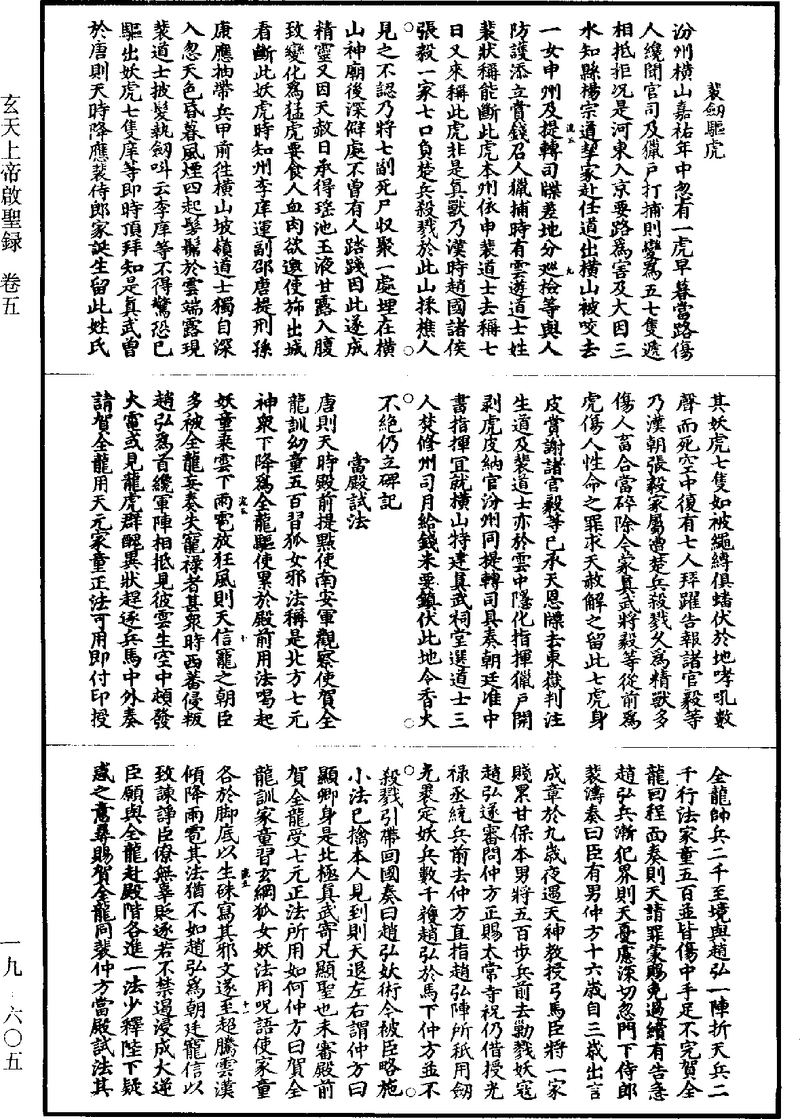 裴劒驅虎
汾州橫山嘉祐年中忽有一虎早暮當路傷
人纔聞官司及獵戶打捕則變爲五七隻遞
相抵拒況是河東入京要路爲害及大因三
水知縣楊宗道挈家赴任道出橫山被咬去
一女申州及提轉司牒差地分巡檢等與人
防護添立賞錢召人獵捕時有雲遊道士姓
裴狀稱能斷此虎本州依申裴道士去稱七
日又來稱此虎非是真獸乃漢時趙國諸侯
張毅一家七口負楚兵殺戮於此山採樵人
見之不認乃將七副死尸収聚一處埋在橫
山神廟後深僻處不曾有人踏踐因此遂成
精靈又因天赦日承得瑤池玉液甘露入腹
致變化爲猛虎要食人血肉欲邀使祈出城
看斷此妖虎時知州李庠運副邵唐提刑孫
康應抽帶兵甲前往橫山坡嶺道士獨自深
入忽天色昏暮風煙四起髣髴於雲端露現
裴道士披髮執劒呌云李庠等不得驚恐已
驅出妖虎七隻庠等即時頂拜知是真武曾
於唐則天時降應裴侍郎家誕生留此姓氏
其妖虎七隻如被繩縛俱蟠伏於地哮吼數
聲而死空中復有七人拜躍告報諸官毅等
乃漢朝張毅家屬遭楚兵殺戮久爲精獸多
傷人畜合當碎除今蒙真武將毅等從前爲
虎傷人性命之罪求天赦解之留此七虎身
皮賞謝諸官毅等已承天恩牒去東嶽判注
生道及裴道士亦於雲中隱化指揮獵戶開
剥虎皮納官汾州同提轉司具奏朝廷准中
書指揮宜就橫山特建真武祠堂選道士三
人焚修州司月給錢米要鎮伏此地令香火
不絕仍立碑記
當殿試法
唐則天時殿前提點使南安軍觀察使賀全
龍訓幼童五百習狐女邪法稱是北方七元
神衆下降爲全龍驅使累於殿前用法喝起
妖童乘雲下雨雹放狂風則天信寵之朝臣
多被全龍妄奏失寵祿者甚衆時西蕃侵叛
趙弘爲首纔軍陣相抵見彼雲生空中頻發
火電或見龍虎群醜異狀趕逐兵馬中外奏
請賀全龍用天元家童正法可用即付印授
全龍帥兵二千至境與趙弘一陣折天兵二
千行法家童五百並皆傷中手足不完賀全
龍回程面奏則天請罪蒙賜免過續有告急
趙弘兵漸犯界則天憂慮深切忽門下侍郎
裴濤奏曰臣有男仲方十六歲自三歲出言
成章於九歲夜遇天神教授弓馬臣將一家
賤累甘保本男將五百步兵前去勦戮妖寇
趙弘遂審問仲方正賜太常寺祝仍借授光
祿丞統兵前去仲方直指趙弘陣所祇用劒
光裴定妖兵數千獲趙弘於馬下仲方並不
殺戮引帶回國奏曰趙弘妖術今被臣略施
小法已擒本人見到則天退左右謂仲方曰
顯卿身是北極真武寄凡顯聖也未審殿前
賀全龍受七元正法所用如何仲方曰賀全
龍訓家童習玄綱狐女妖法用呪語使家童
各於脚底以生硃寫其邪文遂至超騰雲漢
傾降雨雹其法猶不如趙弘爲朝廷寵信以
致諫諍臣僚無辜貶逐若不禁遏浸成大逆
臣願與全龍赴殿階各進一法少釋陛下疑
惑之意尋賜賀全龍同裴仲方當殿試法其
玄天上帝啟聖録　卷五
一九-六〇五